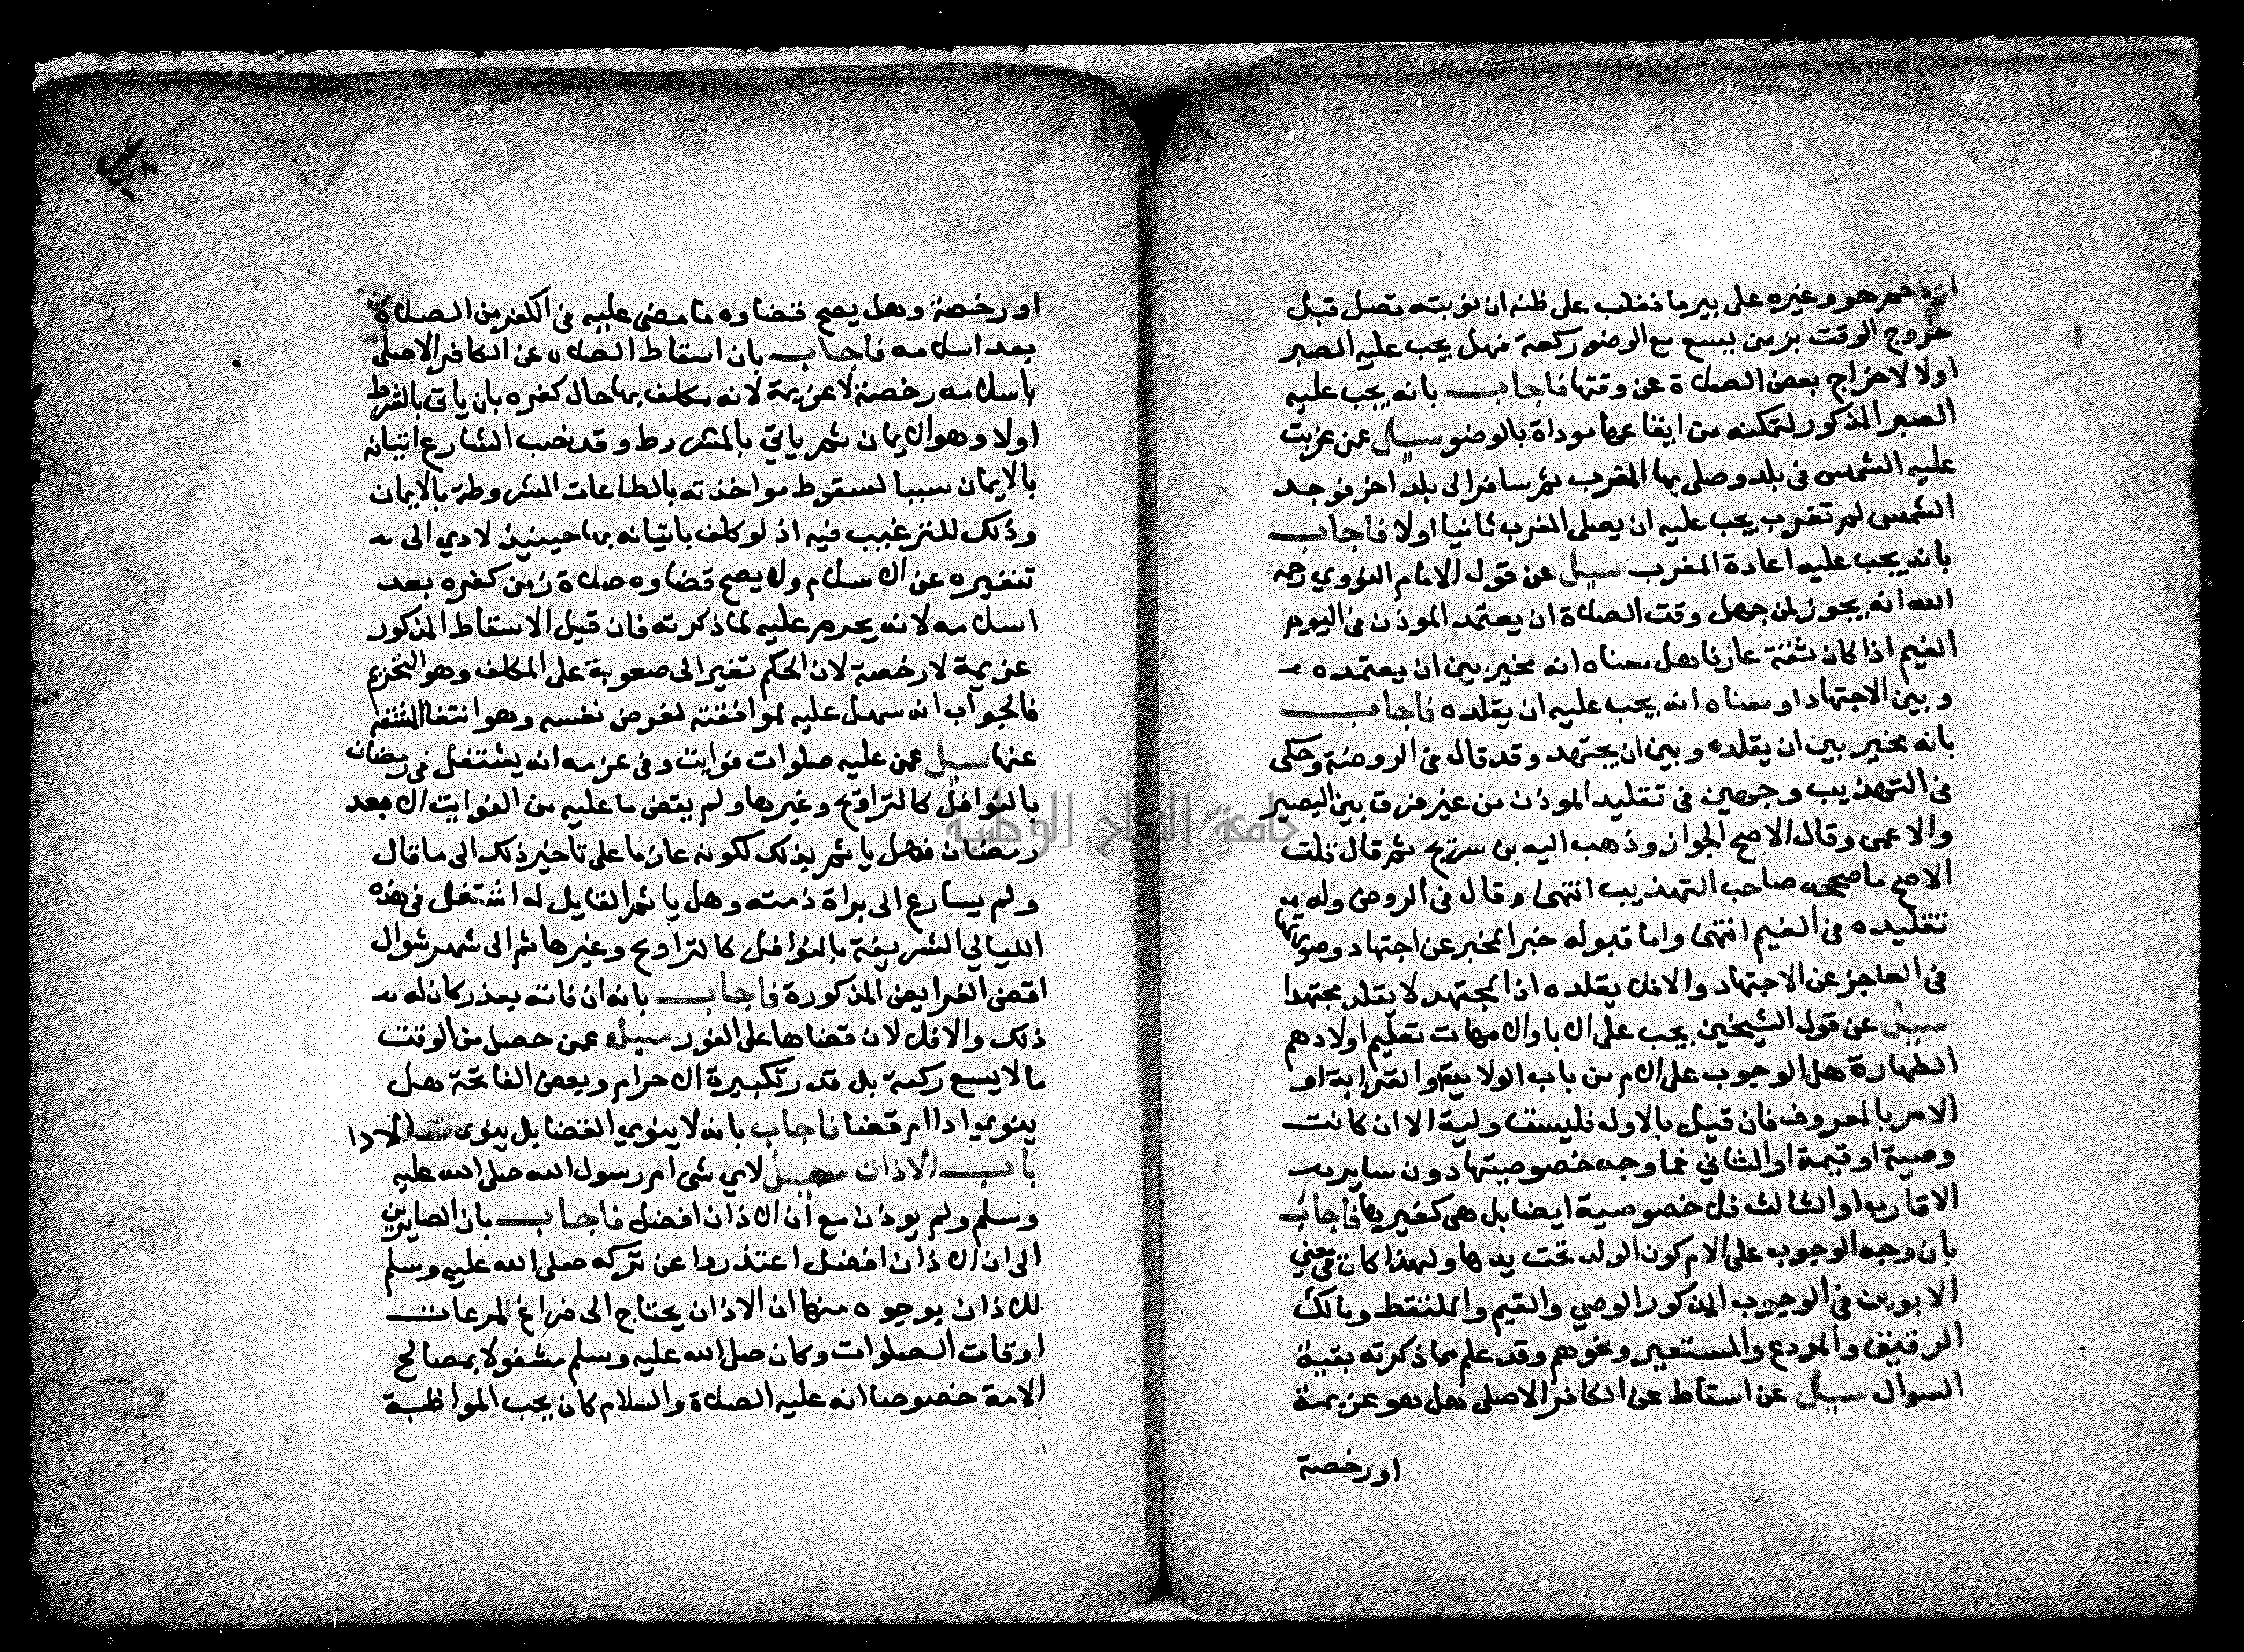 ازدحم هو وغيره على بير ما فغلب على ظنه ان نوبته تصل قبل
خروج الوقت بزمن يسع مع الوضو ركعة فهل يجب عليه الصبر
اولا لاخراج بعض الصلاة عن وقتها فاجاب بانه يجب عليه
الصبر المذكور لتمكنه من ايقاعها موداة بالوضو سيل عمن غربت
عليه الشمس في بلد وصلى بها المغرب ثم سافر الى بلد اخر فوجد
الشمس لم تغرب يجب عليه ان يصلى المغرب ثانيا اولا فاجاب
بانه يجب عليه اعادة المغرب سيل عن قول الامام النووي رحمه
الله انه يجوز لمن جهل وقت الصلاة ان يعتمد الموذن في اليوم
الغيم اذا كان ثقة عارفا هل معناه انه مخير بين ان يعتمده
وبين الاجتهاد او معناه انه يجب عليه ان يقلده فاجاب
بانه مخير بين ان يقلده وبين ان يجتهد وقد قال في الروضة وحكى
في التهذيب وجهين في تقليد الموذن من غير فرق بين البصير
والاعمى وقال الاصح الجواز وذهب اليه بن سريج ثم قال قلت
الاصح ما صححه صاحب التهذيب انتهى وقال في الروض وله
تقليده في الغيم انتهى واما قبوله خبر المخبر عن اجتهاد وصورتها
في العاجز عن الاجتهاد والافلا يقلده اذ المجتهد لا يقلد مجتهدا
سيل عن قول الشيخين يجب على الابا والامهات تعليم اولادهم
الطهارة هل الوجوب على الام من باب الولاية او القرابة او
الامر بالمعروف فان قيل بالاول فليست ولية الا ان كانت
وصية او قيمة او الثاني فما وجه خصوصيتها دون ساير
الاقارب او الثالث فلا خصوصية ايضا بل هي كغيرها فاجاب
بان وجه الوجوب على الام كون الولد تحت يدها ولهذا كان في معنى
الابوين في الوجوب المذكور الوصي والقيم والملتقط ومالك
الرقيق والمودع والمستعير ونحوهم وقد علم مما ذكرته بقية
السوال سيل عن اسقاط عن الكافر الاصلى هل هو عزيمة
او رخصة
او رخصة وهل يصح قضاوه ما مضى عليه في الكفر من الصلاة
بعد اسلامه فاجاب بان اسقاط الصلاة عن الكافر الاصلى
باسلامه رخصة لا عزيمة لانه مكلف بها حال كفره بان ياتى بالشرط
اولا وهو الايمان ثم ياتي بالمشروط وقد نصب الشارع اتيانه
بالايمان سببا لسقوط مواخذته بالطاعات المشروطة بالايمان
وذلك للترغيب فيه اذ لو كلف باتيانه بها حينيذ لادي الى
تنفيره عن الاسلام ولا يصح قضاوه صلاة زمن كفره بعد
اسلامه لانه يحرم عليه لما ذكرته فان قيل الاسقاط المذكور
عزيمة لا رخصة لان الحكم تغير الى صعوبة على المكلف وهو التحريم
فالجواب انه سهل عليه لموافقته لغرض نفسه وهو انتفا المشقة
عنها سيل عمن عليه صلوات فوايت وفي عزمه انه يشتغل في رمضان
بالنوافل كالتراويح وغيرها ولم يقض ما عليه من الفوايت الا بعد
رمضان فهل ياثم بذلك لكونه عازما على تاخير ذلك الى ما قال
ولم يسارع الى براة ذمته وهل ياثم القايل له اشتغل في هذه
الليالي الشريفة بالنوافل كالتراويح وغيرها ثم الى شهر شوال
اقض الفرايض المذكورة فاجاب بانه ان فاتته بعذر كان له
ذلك والافلا لان قضاها على الفور سيل عمن حصل من الوقت
ما لا يسع ركعة بل قدر تكبيرة الاحرام وبعض الفاتحة هل
ينوي ادا ام قضا فاجاب بانه لا ينوي القضا بل ينوى الادا
باب الاذان سيل لاي شى امر رسول الله صلى الله عليه
وسلم ولم يوذن مع ان الاذان افضل فاجاب بان الصايرين
الى ان الاذان افضل اعتذروا عن تركه صلى الله عليه وسلم
للاذان بوجوه منها ان الاذان يحتاج الى فراغ لمرعات
اوقات الصلوات وكان صلى الله عليه وسلم مشغولا بمصالح
الامة خصوصا انه عليه الصلاة والسلام كان يجب المواظبة
جامعة النجاح الوطنية